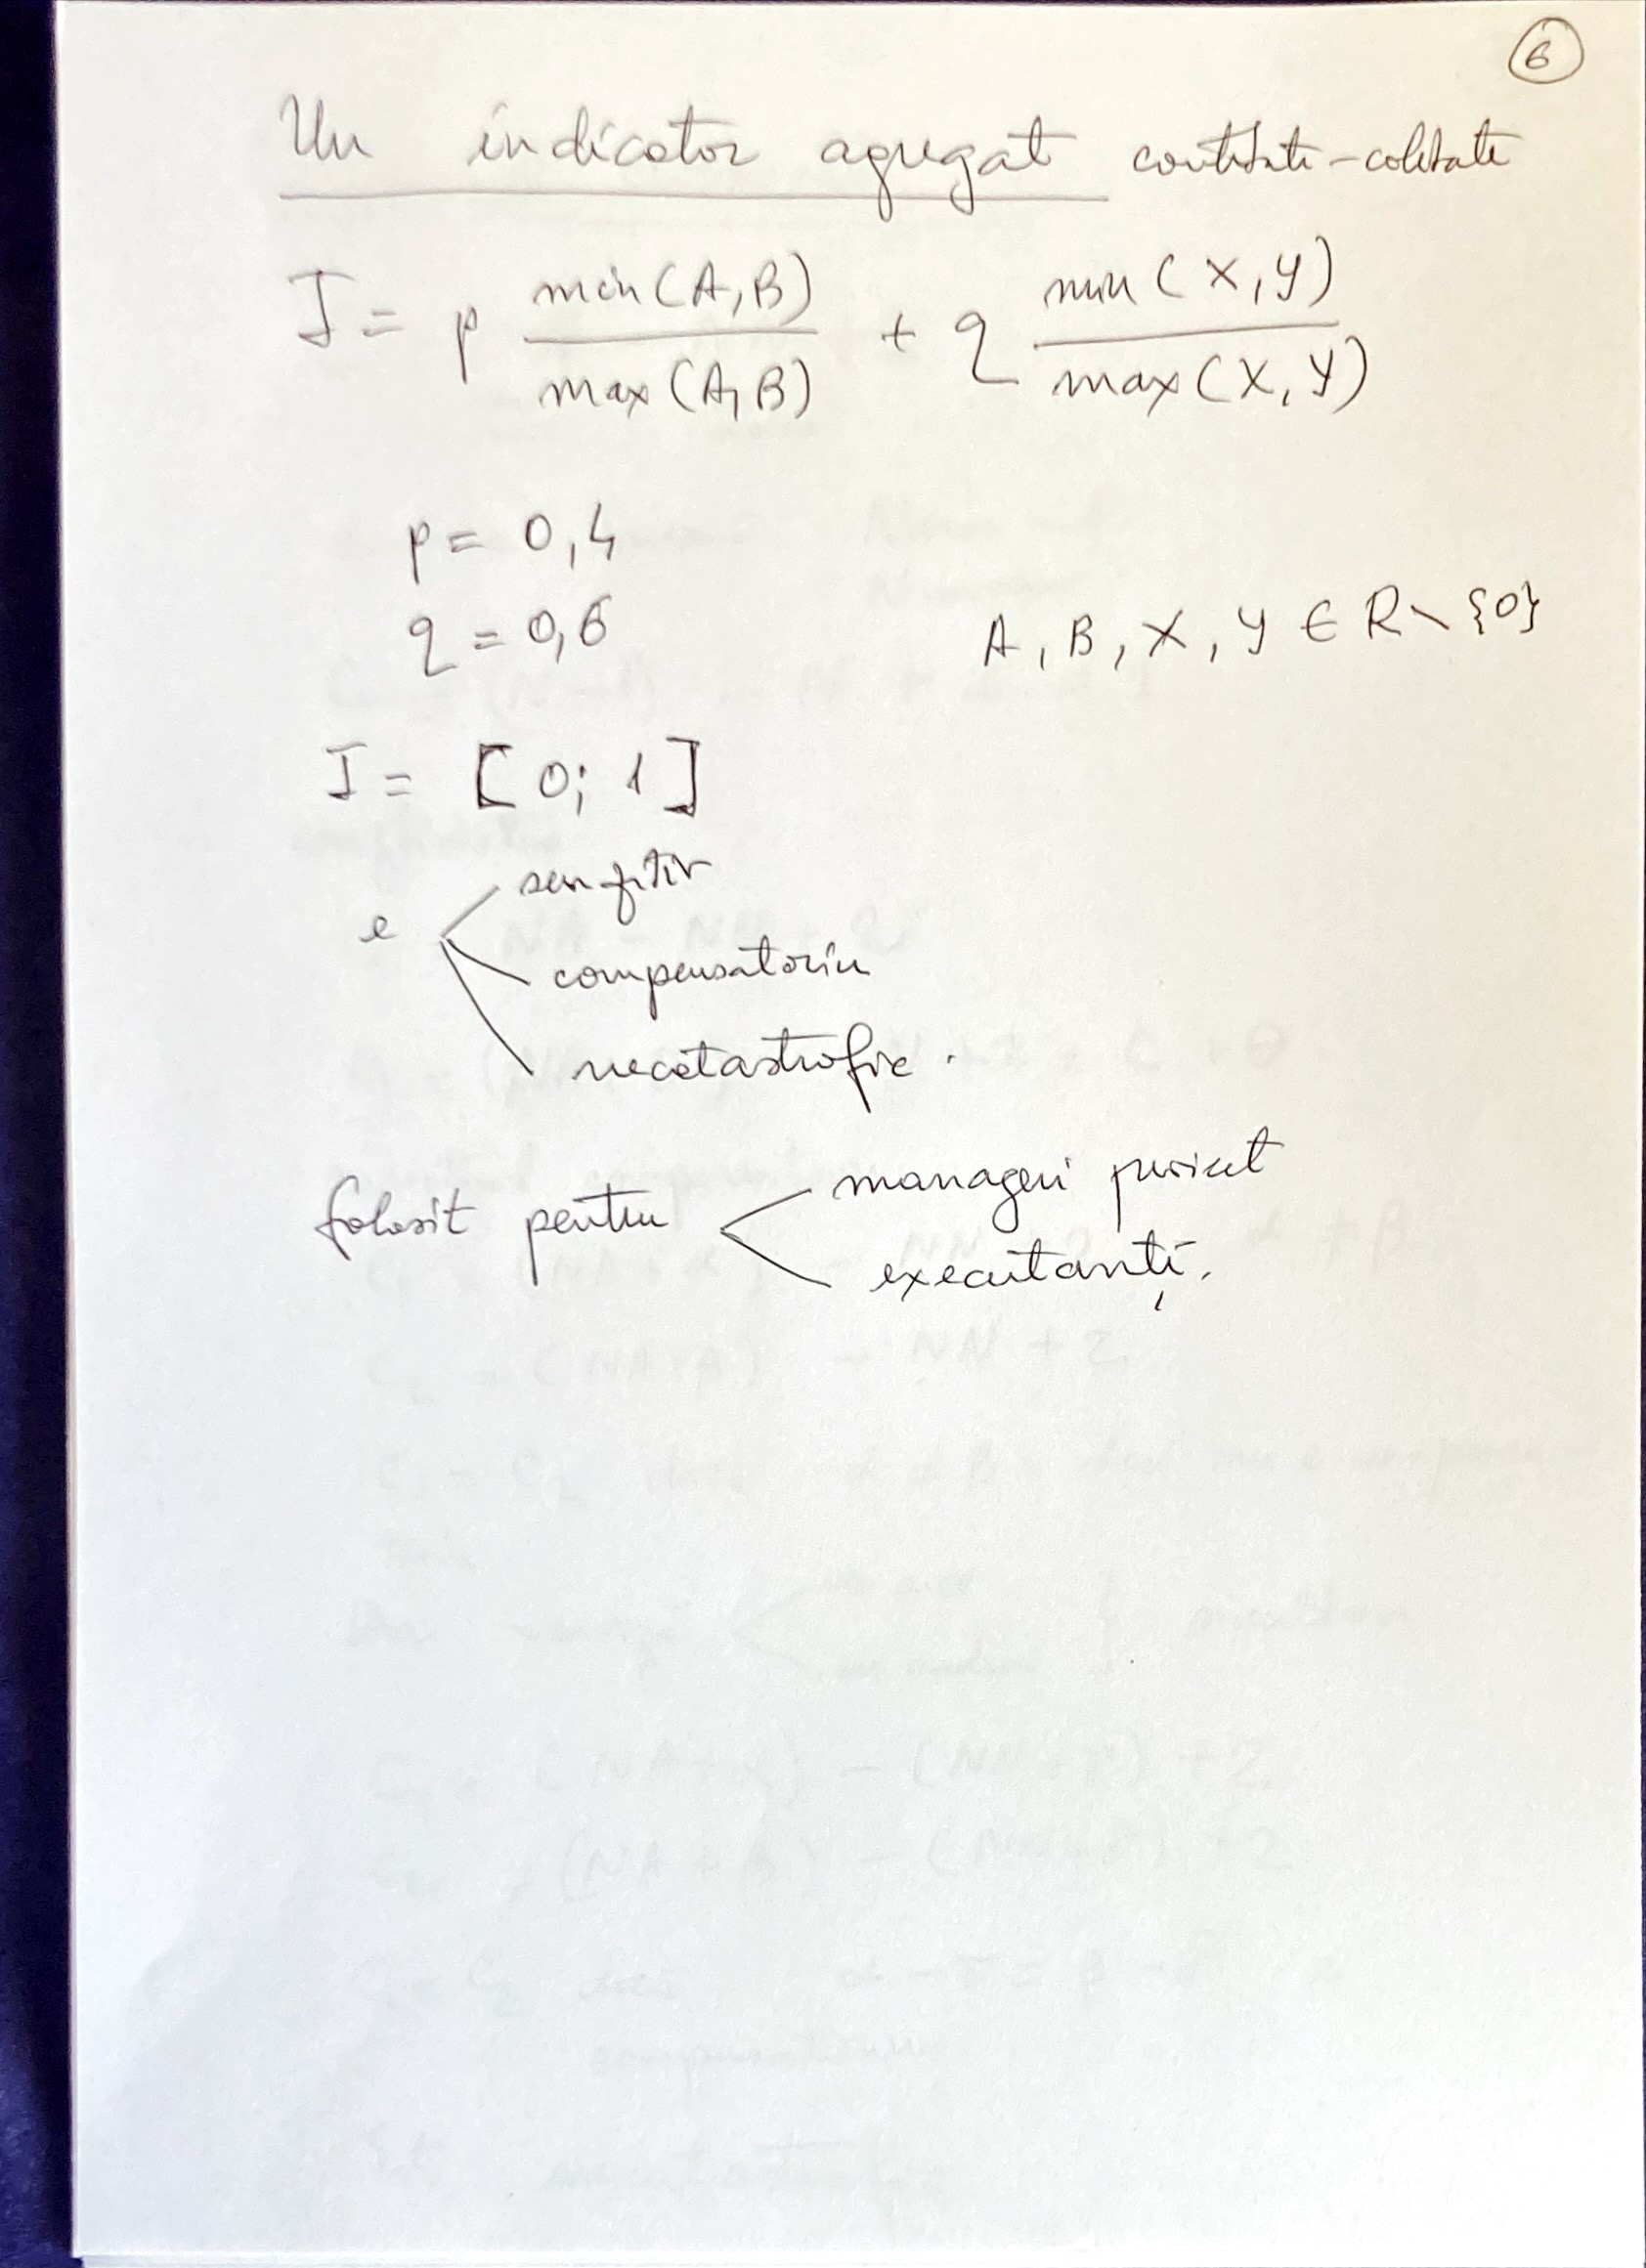 6
Un indicator agregat cantitate-calitate
I = p min(A,B)/max(A,B) + q min(X,Y)/max(X,Y)
p = 0,4
q = 0,6
A, B, X, Y ∈ R \ {0}
I = [0; 1]
e
senzitiv
compensatoriu
necatastrofic.
folosit pentru
manageri proiect
executanți.